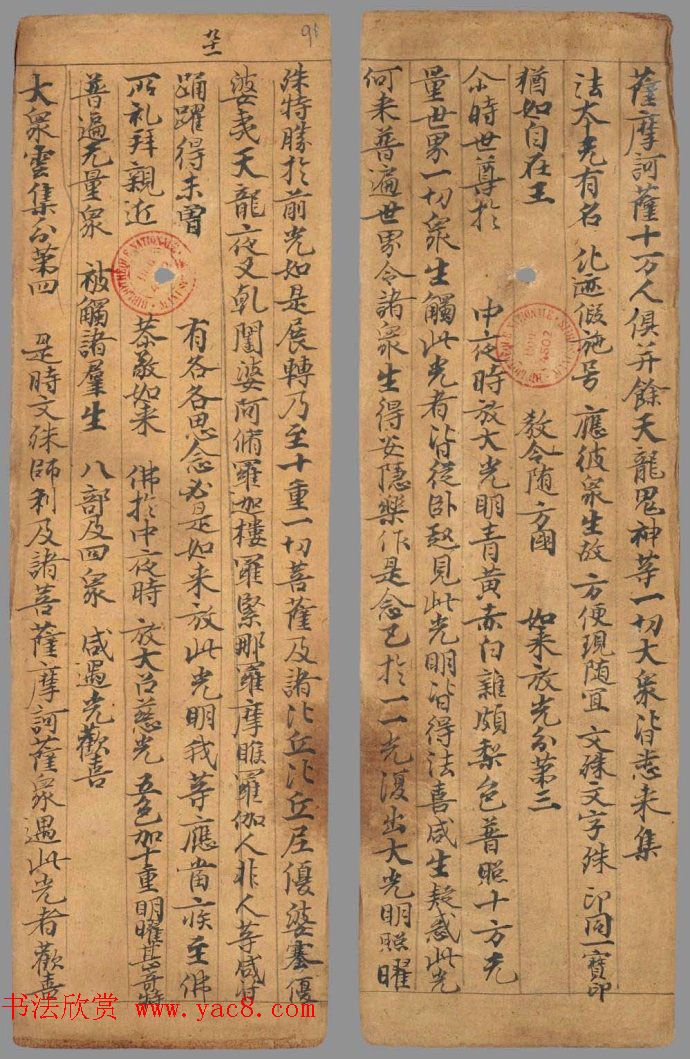 薩摩訶薩十万人俱并餘天龍鬼神等一切大衆皆悉来集
法本无有名 化迹假施号 應彼衆生故 方便現随宜 文殊文字殊 印同一寶印
猶如自在王 教令随方國 如来放光分第三
尒時世尊於 中夜時放大光明青黄赤白雜頗梨色普照十方无
量世界一切衆生觸此光者皆従卧起見此光明皆得法喜咸生疑惑此光
何来普遍世界令諸衆生得安隱樂作是念已於一一光復出大光明照曜
殊特勝於前光如是展轉乃至十重一切菩薩及諸比丘比丘尼優婆塞優
婆夷天龍夜叉乾闥婆阿脩羅迦樓羅緊那羅摩睺羅伽人非人等咸
踊躍得未曾 有各各思念必是如来放此光明我等應當疾至佛
所礼拜親近 恭敬如来 佛於中夜時 放大慈光 五色加十重 明曜甚奇特
普遍无量衆 被觸諸羣生 八部及四衆 咸遇光歡喜
大衆雲集分第四 是時文殊師利及諸菩薩摩訶薩衆遇此光者歡喜
BIBLIOTHEQUE NATIONALE
4502
书法欣赏 www.yac8.com